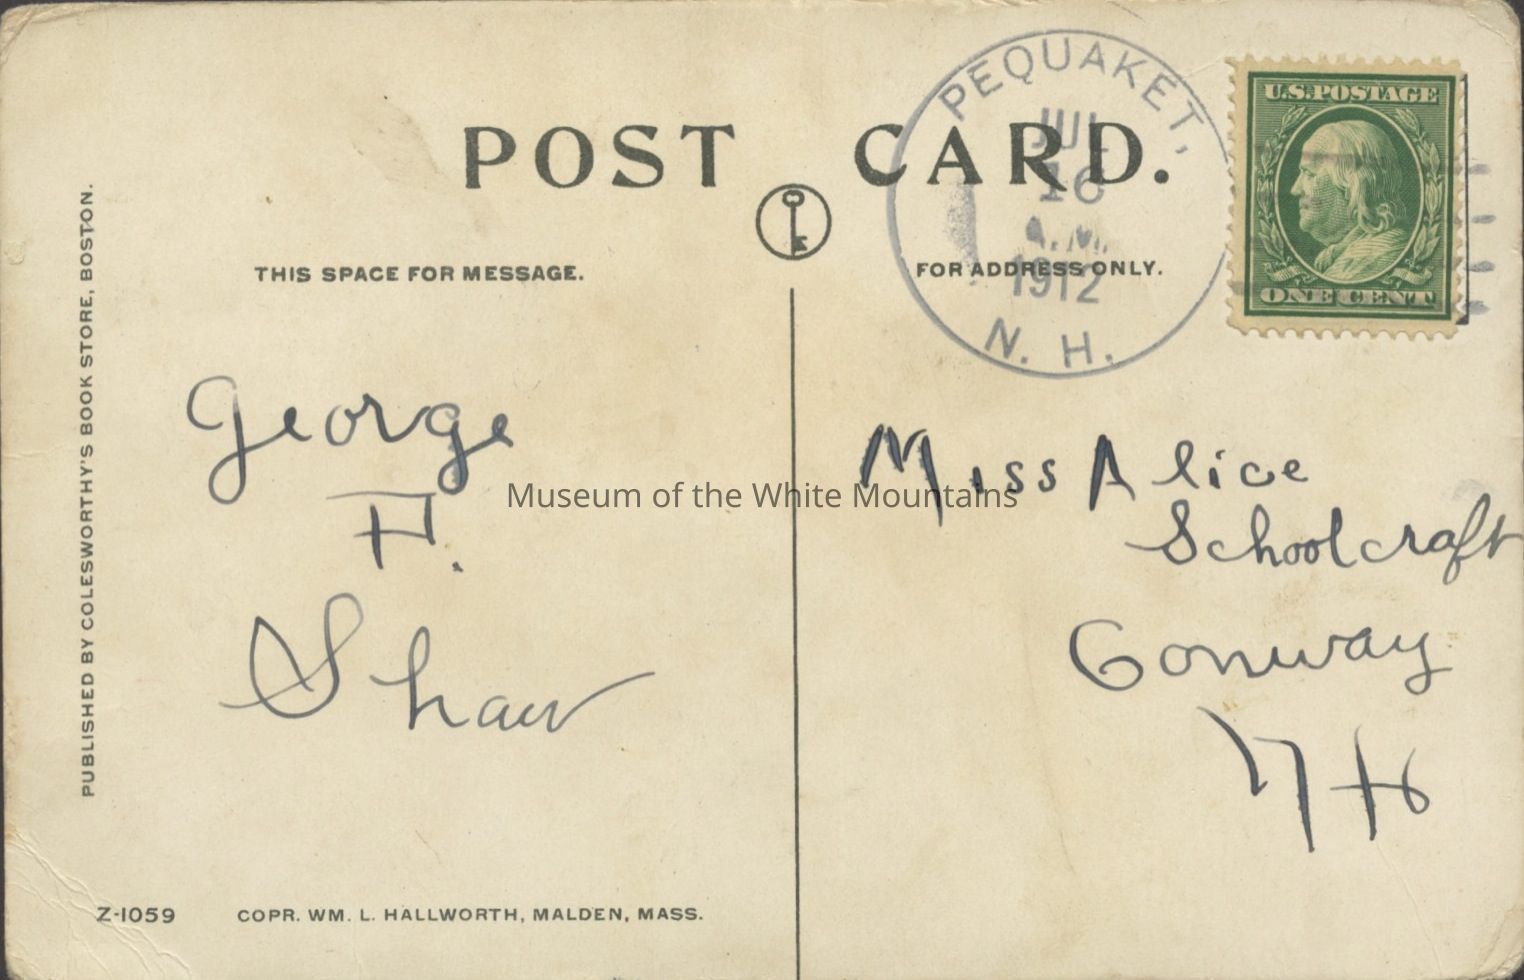 POST CARD.
THIS SPACE FOR MESSAGE.
FOR ADDRESS ONLY.
PEQUAKET,
JUL
16
A.M.
1912
N. H.
U.S. POSTAGE
ONE CENT
PUBLISHED BY COLESWORTHY'S BOOK STORE, BOSTON.
George
H.
Shaw
Miss Alice
Schoolcraft
Conway
NH
Museum of the White Mountains
Z-1059 COPR. WM. L. HALLWORTH, MALDEN, MASS.